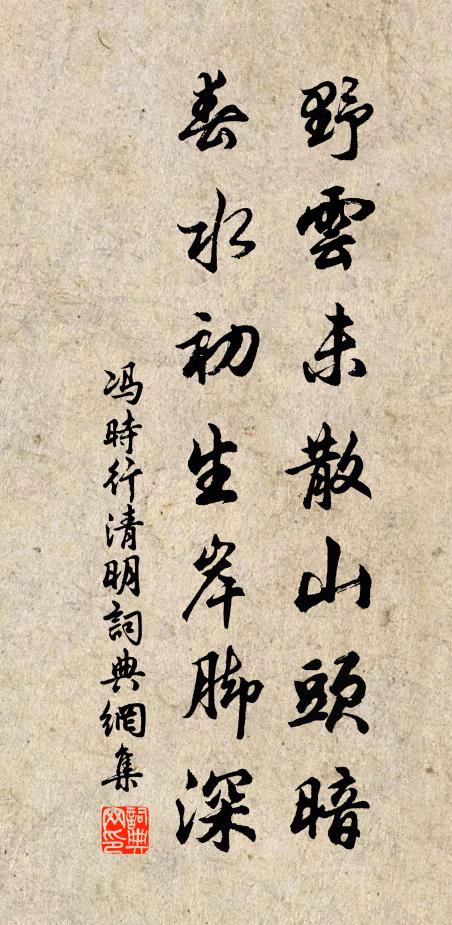 野雲未散山頭暗
春水初生岸脚深
冯時行清明詞典網集
詞典網印